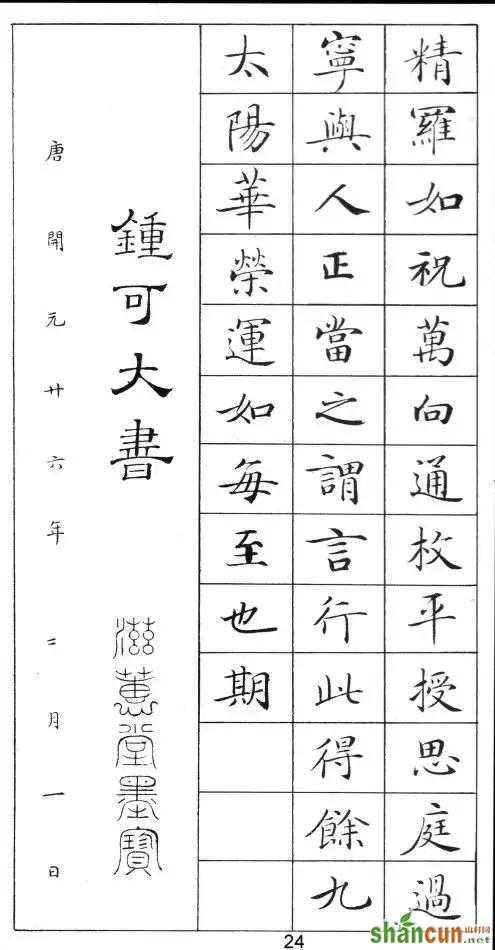 精羅如祝萬向通枚平授思庭過
寧與人正當之謂言行此得餘九
太陽華榮運如每至也期
鍾可大書
滋蕙堂墨寶
唐開元廿六年二月一日
24
shancun
山村网
.net